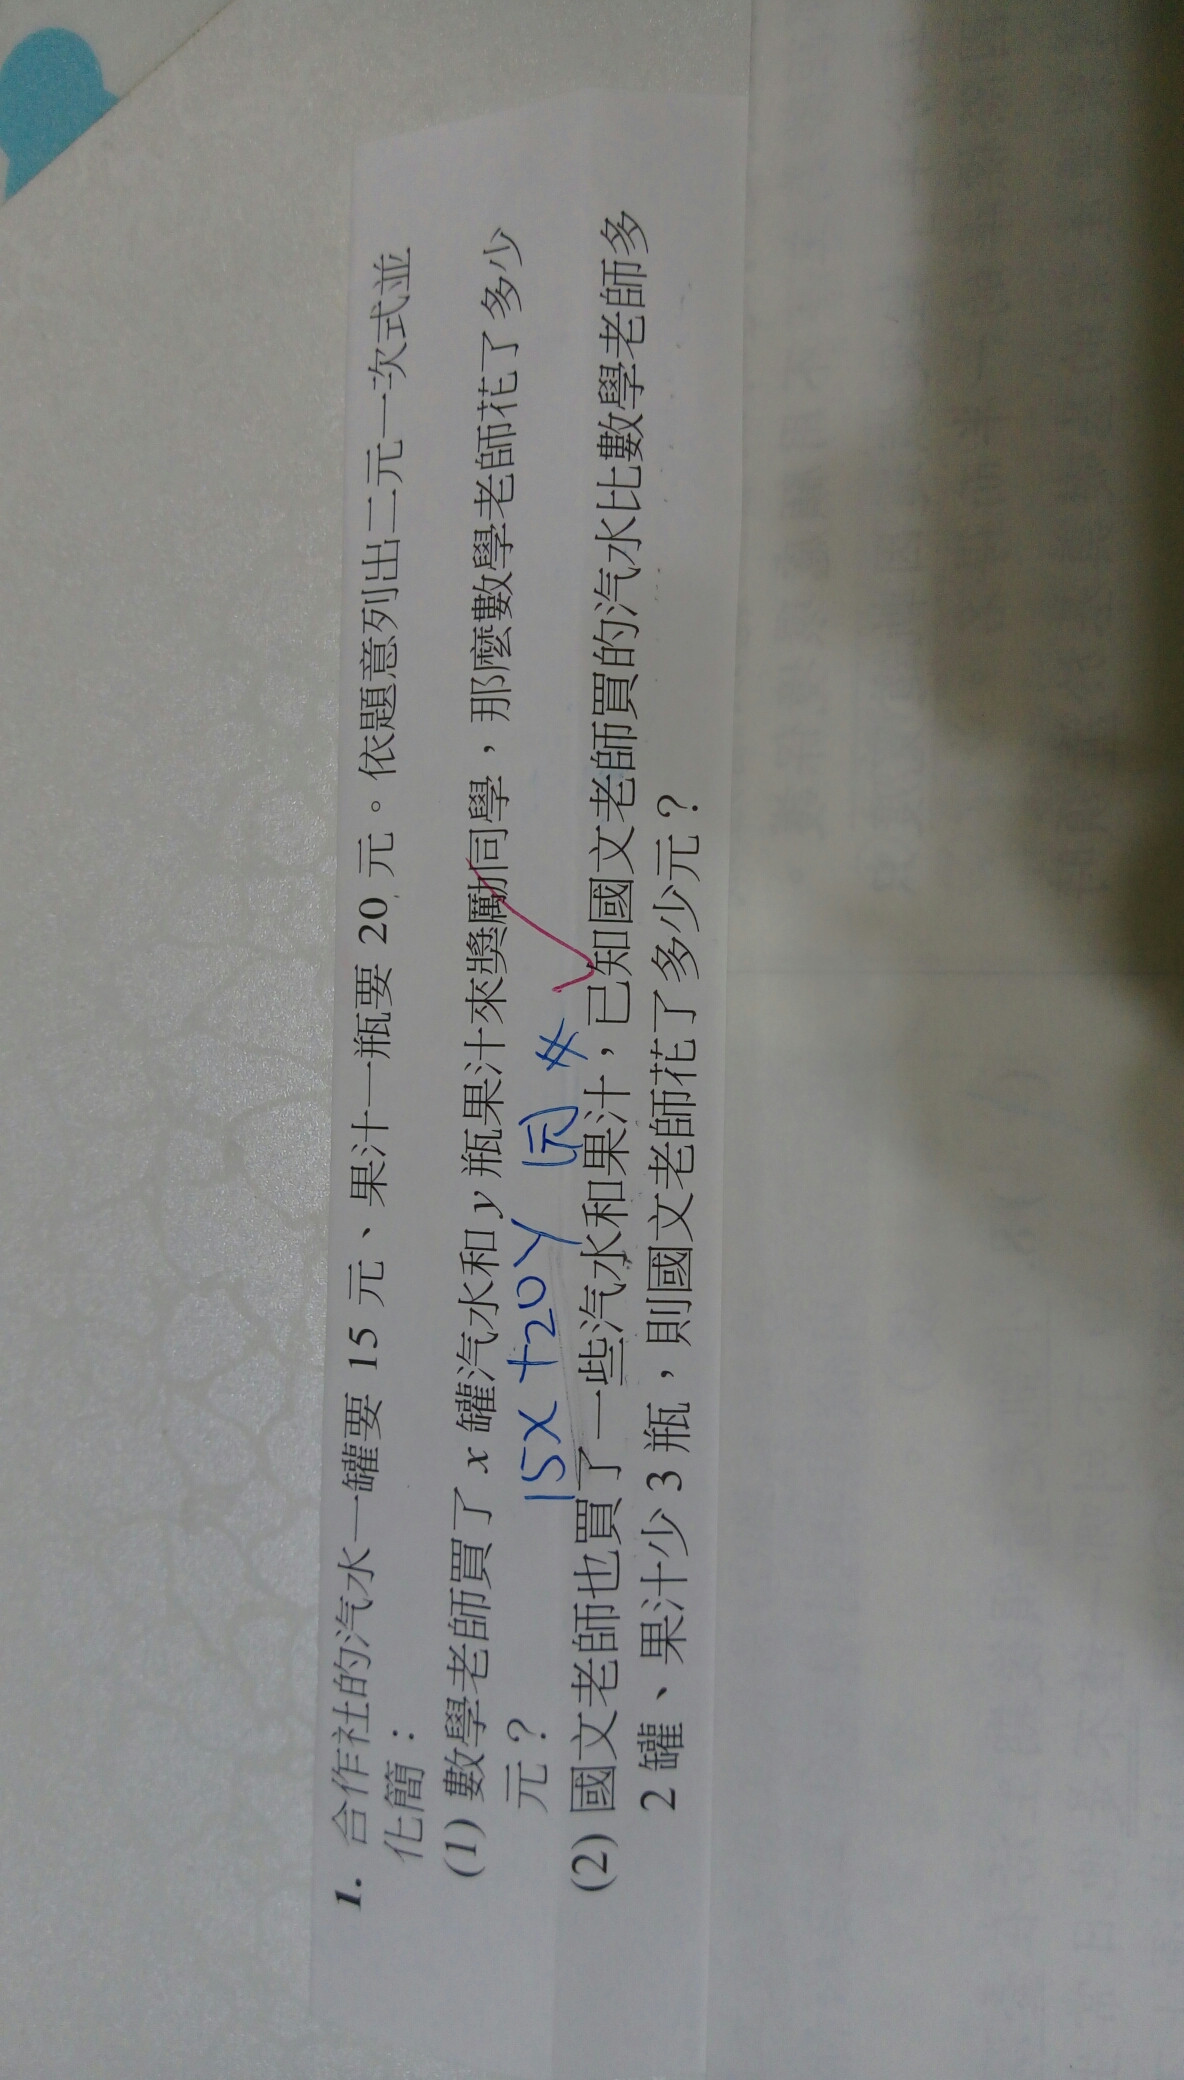 1. 合作社的汽水一罐要 15 元、果汁一瓶要 20 元。依題意列出二元一次式並
化簡：
(1) 數學老師買了 x 罐汽水和 y 瓶果汁來獎勵同學，那麼數學老師花了多少
元？
15x+20y 元 #
(2) 國文老師也買了一些汽水和果汁，已知國文老師買的汽水比數學老師多
2 罐、果汁少 3 瓶，則國文老師花了多少元？